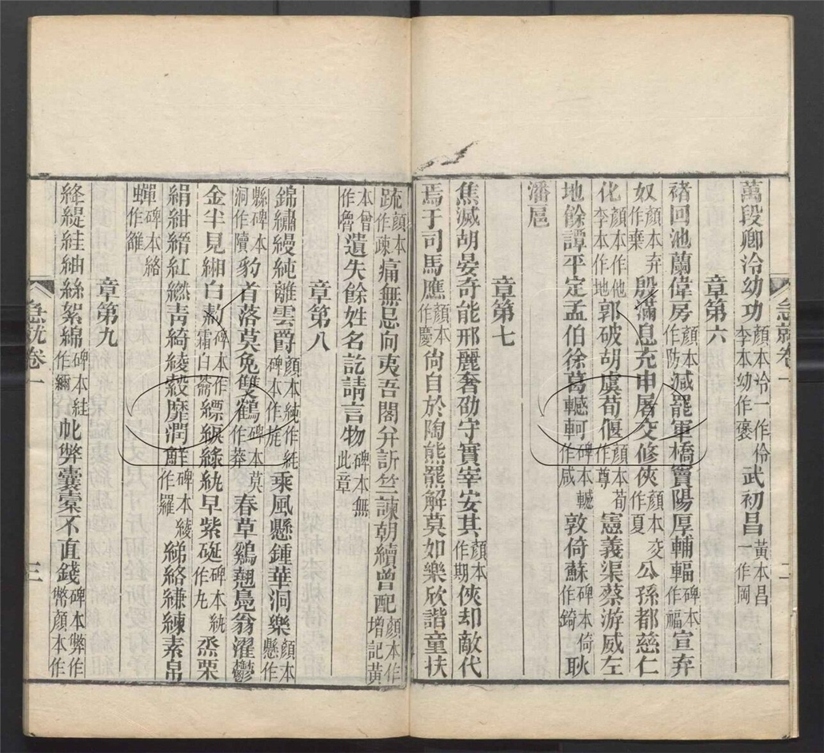 萬段卿泠幼功顏本泠一作伶李本幼作褒武初昌黃本昌一作岡
章第六
褚回池蘭偉房顏本作防減罷軍橋竇陽厚輔輻碑本作福宣弃
奴顏本弃作棄殷滿息充申屠交修俠顏本交作夏公孫都慈仁
化顏本作他李本作地郭破胡虞荀偃顏本荀作尊憲義渠蔡游威左
地餘譚平定孟伯徐葛轗軻碑本轗作咸敦倚蘇碑本倚作錡耿
潘扈
章第七
焦滅胡晏奇能邢麗奢劭守實宰安其顏本作期俠却敵代
焉于司馬應顏本作慶尙自於陶熊羆解莫如樂欣諧童扶
疏顏本作疎痛無忌向夷吾閎幷訢竺諫朝續曾配顏本作增記黃
本曾作魯遺失餘姓名訖請言物碑本無此章
章第八
錦繡縵純離雲爵顏本純作䋃碑本作旄乘風懸鍾華洞樂顏本懸作
縣碑本洞作隫豹首落莫兔雙鶴碑本莫作莽春草鷄翹鳧翁濯鬱
金半見緗白䊅碑本作霜白䔥縹綟綠紈早紫硟碑本紈作九烝栗
絹紺縉紅繎靑綺綾縠靡潤鮮碑本綾作羅綈絡縑練素帛
蟬碑本絡作雒
章第九
絳緹絓紬絲絮綿碑本絓作緰帔弊囊橐不直錢碑本弊作幣顏本作
急就卷一
二
急就卷一
三